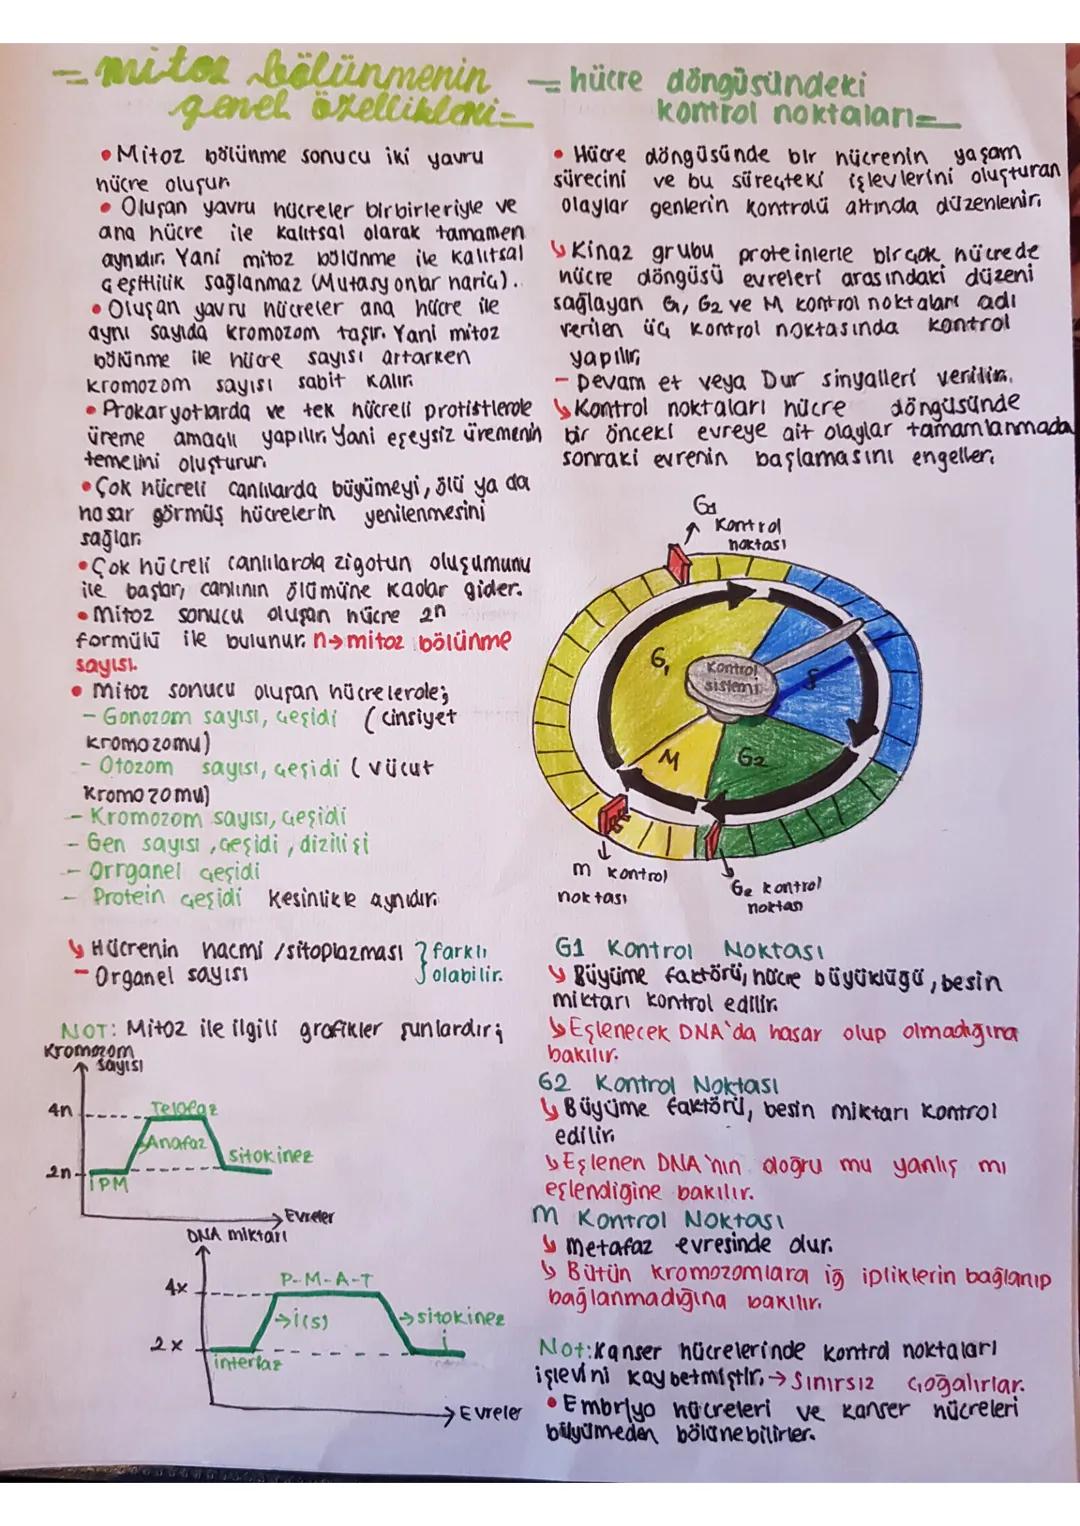 = mitoz bölünmenin
genel özellikleri =
• Mitoz bölünme sonucu iki yavru
hücre oluşur.
• Oluşan yavru hücreler birbirleriyle ve
ana hücre ile kalıtsal olarak tamamen
aynıdır. Yani mitoz bölünme ile kalıtsal
çeşitlilik sağlanmaz (Mutasyonlar hariç).
• Oluşan yavru hücreler ana hücre ile
aynı sayıda kromozom taşır. Yani mitoz
bölünme ile hücre sayısı artarken
kromozom sayısı sabit kalır.
• Prokaryotlarda ve tek hücreli protistlerde
üreme amaçlı yapılır. Yani eşeysiz üremenin
temelini oluşturur.
• Çok hücreli canlılarda büyümeyi, ölü ya da
hasar görmüş hücrelerin yenilenmesini
sağlar.
• Çok hücreli canlılarda zigotun oluşumunu
ile başlar, canlının ölümüne kadar gider.
• Mitoz sonucu oluşan hücre 2n
formülü ile bulunur. n→mitoz bölünme
sayısı.
• mitoz sonucu oluşan hücrelerde;
- Gonozom sayısı, çeşidi (cinsiyet
kromozomu)
- Otozom sayısı, çeşidi (vücut
kromozomu)
- Kromozom sayısı, çeşidi
- Gen sayısı, çeşidi, dizilişi
- Orrganel çeşidi
- Protein çeşidi kesinlikle aynıdır.
↳ Hücrenin hacmi / sitoplazması } farklı
- Organel sayısı } olabilir.
NOT: Mitoz ile ilgili grafikler şunlardır;
Kromozom
sayısı
4n
Telofaz
Anafaz
sitokinez
2n
İPM
Evreler
DNA miktarı
4x
P-M-A-T
→i(s)
→sitokinez
2x
i
interfaz
Evreler
= hücre döngüsündeki
kontrol noktaları =
• Hücre döngüsünde bir hücrenin yaşam
sürecini ve bu süreçteki işlevlerini oluşturan
olaylar genlerin kontrolü altında düzenlenir.
↳ Kinaz grubu proteinlerle birçok hücrede
hücre döngüsü evreleri arasındaki düzeni
sağlayan G1, G2 ve M kontrol noktaları adı
verilen üç kontrol noktasında kontrol
yapılır;
- Devam et veya Dur sinyalleri verilir.
↳ Kontrol noktaları hücre döngüsünde
bir önceki evreye ait olaylar tamamlanmada
sonraki evrenin başlamasını engeller.
G1
Kontrol
noktası
G1
Kontrol
sistemi
S
M
G2
m kontrol
noktası
G2 kontrol
noktası
G1 Kontrol Noktası
↳ Büyüme faktörü, hücre büyüklüğü, besin
miktarı kontrol edilir.
↳ Eşlenecek DNA'da hasar olup olmadığına
bakılır.
G2 Kontrol Noktası
↳ Büyüme faktörü, besin miktarı kontrol
edilir.
↳ Eşlenen DNA'nın doğru mu yanlış mı
eşlendiğine bakılır.
m Kontrol Noktası
↳ metafaz evresinde olur.
↳ Bütün kromozomlara iğ ipliklerin bağlanıp
bağlanmadığına bakılır.
Not: Kanser hücrelerinde kontrol noktaları
işlevini kaybetmiştir. → Sınırsız çoğalırlar.
• Embriyo hücreleri ve kanser hücreleri
büyümeden bölünebilirler.